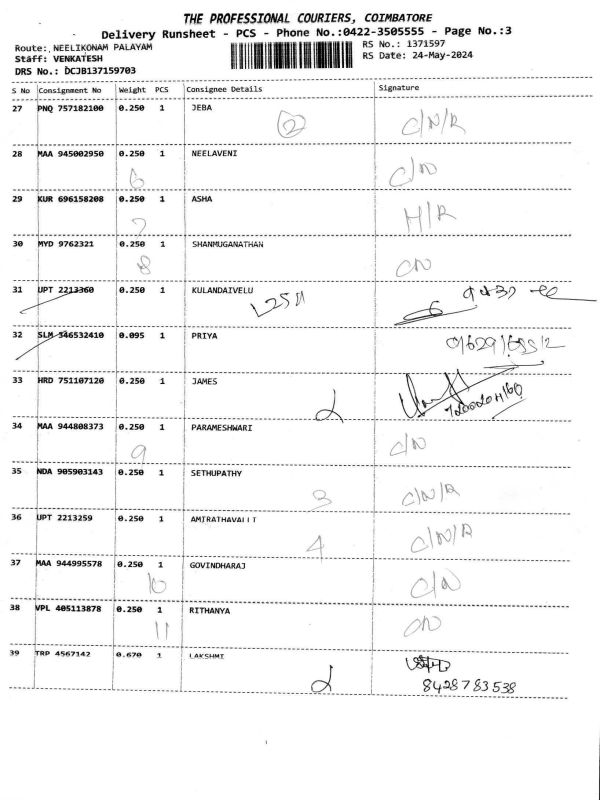 THE PROFESSIONAL COURIERS, COIMBATORE
Delivery Runsheet - PCS - Phone No.:0422-3505555 - Page No.:3
Route: NEELIKONAM PALAYAM
RS No.: 1371597
Staff: VENKATESH
RS Date: 24-May-2024
DRS No.: DCJB137159703
S No Consignment No Weight PCS Consignee Details Signature
27 PNQ 757182100 0.250 1 JEBA C/N/R
2
28 MAA 945002950 0.250 1 NEELAVENI C/N
6
29 KUR 696158208 0.250 1 ASHA H/R
7
30 MYD 9762321 0.250 1 SHANMUGANATHAN CN
8
31 UPT 2213360 0.250 1 KULANDAIVELU
32 SLM 346532410 0.095 1 PRIYA
33 HRD 751107120 0.250 1 JAMES
34 MAA 944808373 0.250 1 PARAMESHWARI C/N
9
35 NDA 905903143 0.250 1 SETHUPATHY C/N/R
3
36 UPT 2213259 0.250 1 AMIRATHAVALLI C/N/R
4
37 MAA 944995578 0.250 1 GOVINDHARAJ C/N
10
38 VPL 405113878 0.250 1 RITHANYA CN
11
39 TRP 4567142 0.670 1 LAKSHMI
8428783538